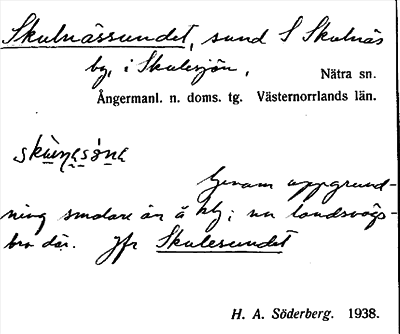 Skulnässundet, sund S Skulnäs
by, i Skulesjön,
Nätra sn.
Ångermanl. n. doms. tg. Västernorrlands län.
Genom uppgrund-
ning smalare än å kbg; nu landsvägs-
bro där. Jfr Skulesundet
H. A. Söderberg. 1938.